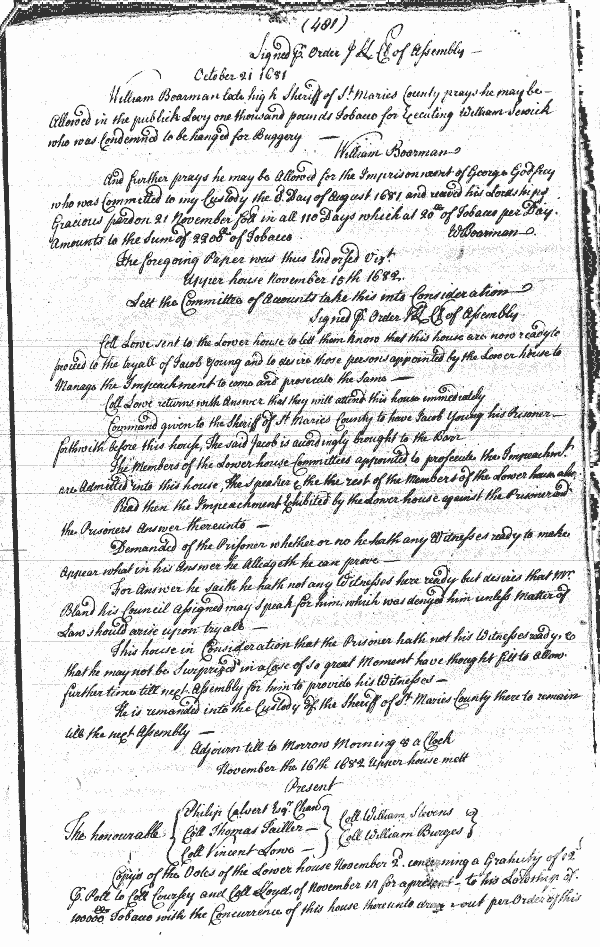 (481)
Signed p. Order J Ll Cl of Assembly
October 21 1681
William Boarman late high Sheriff of St Maries County prays he may be
Allowed in the publick Levy one thousand pounds Tobacco for Executing William Sewick
who was Condemned to be hanged for Buggery
William Boarman
And further prays he may be Allowed for the Imprisonment of George Godfrey
who was Committed to my Custody the 3. Day of August 1681 and received his Lordships
Gracious pardon 21 November foll in all 110 Days which at 20lb of Tobacco per Day
Amounts to the Sum of 2200lb of Tobacco WBoarman
The foregoing Paper was thus Endorsed Vizt.
Upper house November 15th 1682.
Lett the Committee of Accounts take this into Consideration
Signed p. Order J Ll Cl of Assembly
Coll Lowe sent to the Lower house to lett them know that this house are now ready to
proceed to the tryall of Jacob Young and to desire those persons appointed by the Lower house to
Manage the Impeachment to come and prosecute the Same
Coll Lowe returns with Answer that they will attend this house immediately
Command given to the Sheriff of St Maries County to have Jacob Young his Prisoner
forthwith before this house, The said Jacob is accordingly brought to the Barr
The Members of the Lower house Committees appointed to prosecute the Impeachmt.
are Admitted into this house, the Speaker & the the rest of the Members of the Lower house also
Read then the Impeachment Exhibited by the Lower house against the Prisoner and
the Prisoners Answer thereunto
Demanded of the Prisoner whether or no he hath any Witnesses ready to make
Appear what in his Answer he Alledgeth he can prove
For Answer he saith he hath not any Witnesses here ready but desires that Mr
Bland his Council Assigned may Speak for him, which was denyed him unless Matter of
Law should arise upon tryall
This house in Consideration that the Prisoner hath not his Witnesses ready, &
that he may not be Surprized in a Case of so great Moment have thought fitt to Allow
further time till next Assembly for him to provide his Witnesses
He is remanded into the Custody of the Sheriff of St Maries County there to remain
till the next Assembly
Adjourn till to Morrow Morning 8 a Clock
November the 16th 1682 Upper house mett
Present
The honourable Philip Calvert Esqr. Chanc
Coll Thomas Tailler
Coll Vincent Lowe
Coll William Stevens
Coll William Burges
Copys of the Votes of the Lower house November 2d. concerning a Gratuity of 12d
p. Poll to Coll Coursey and Coll Lloyd, of November 14 for a present to his Lordship of
100000lb Tobacco with the Concurrence of this house thereunto drawn out per Order of this